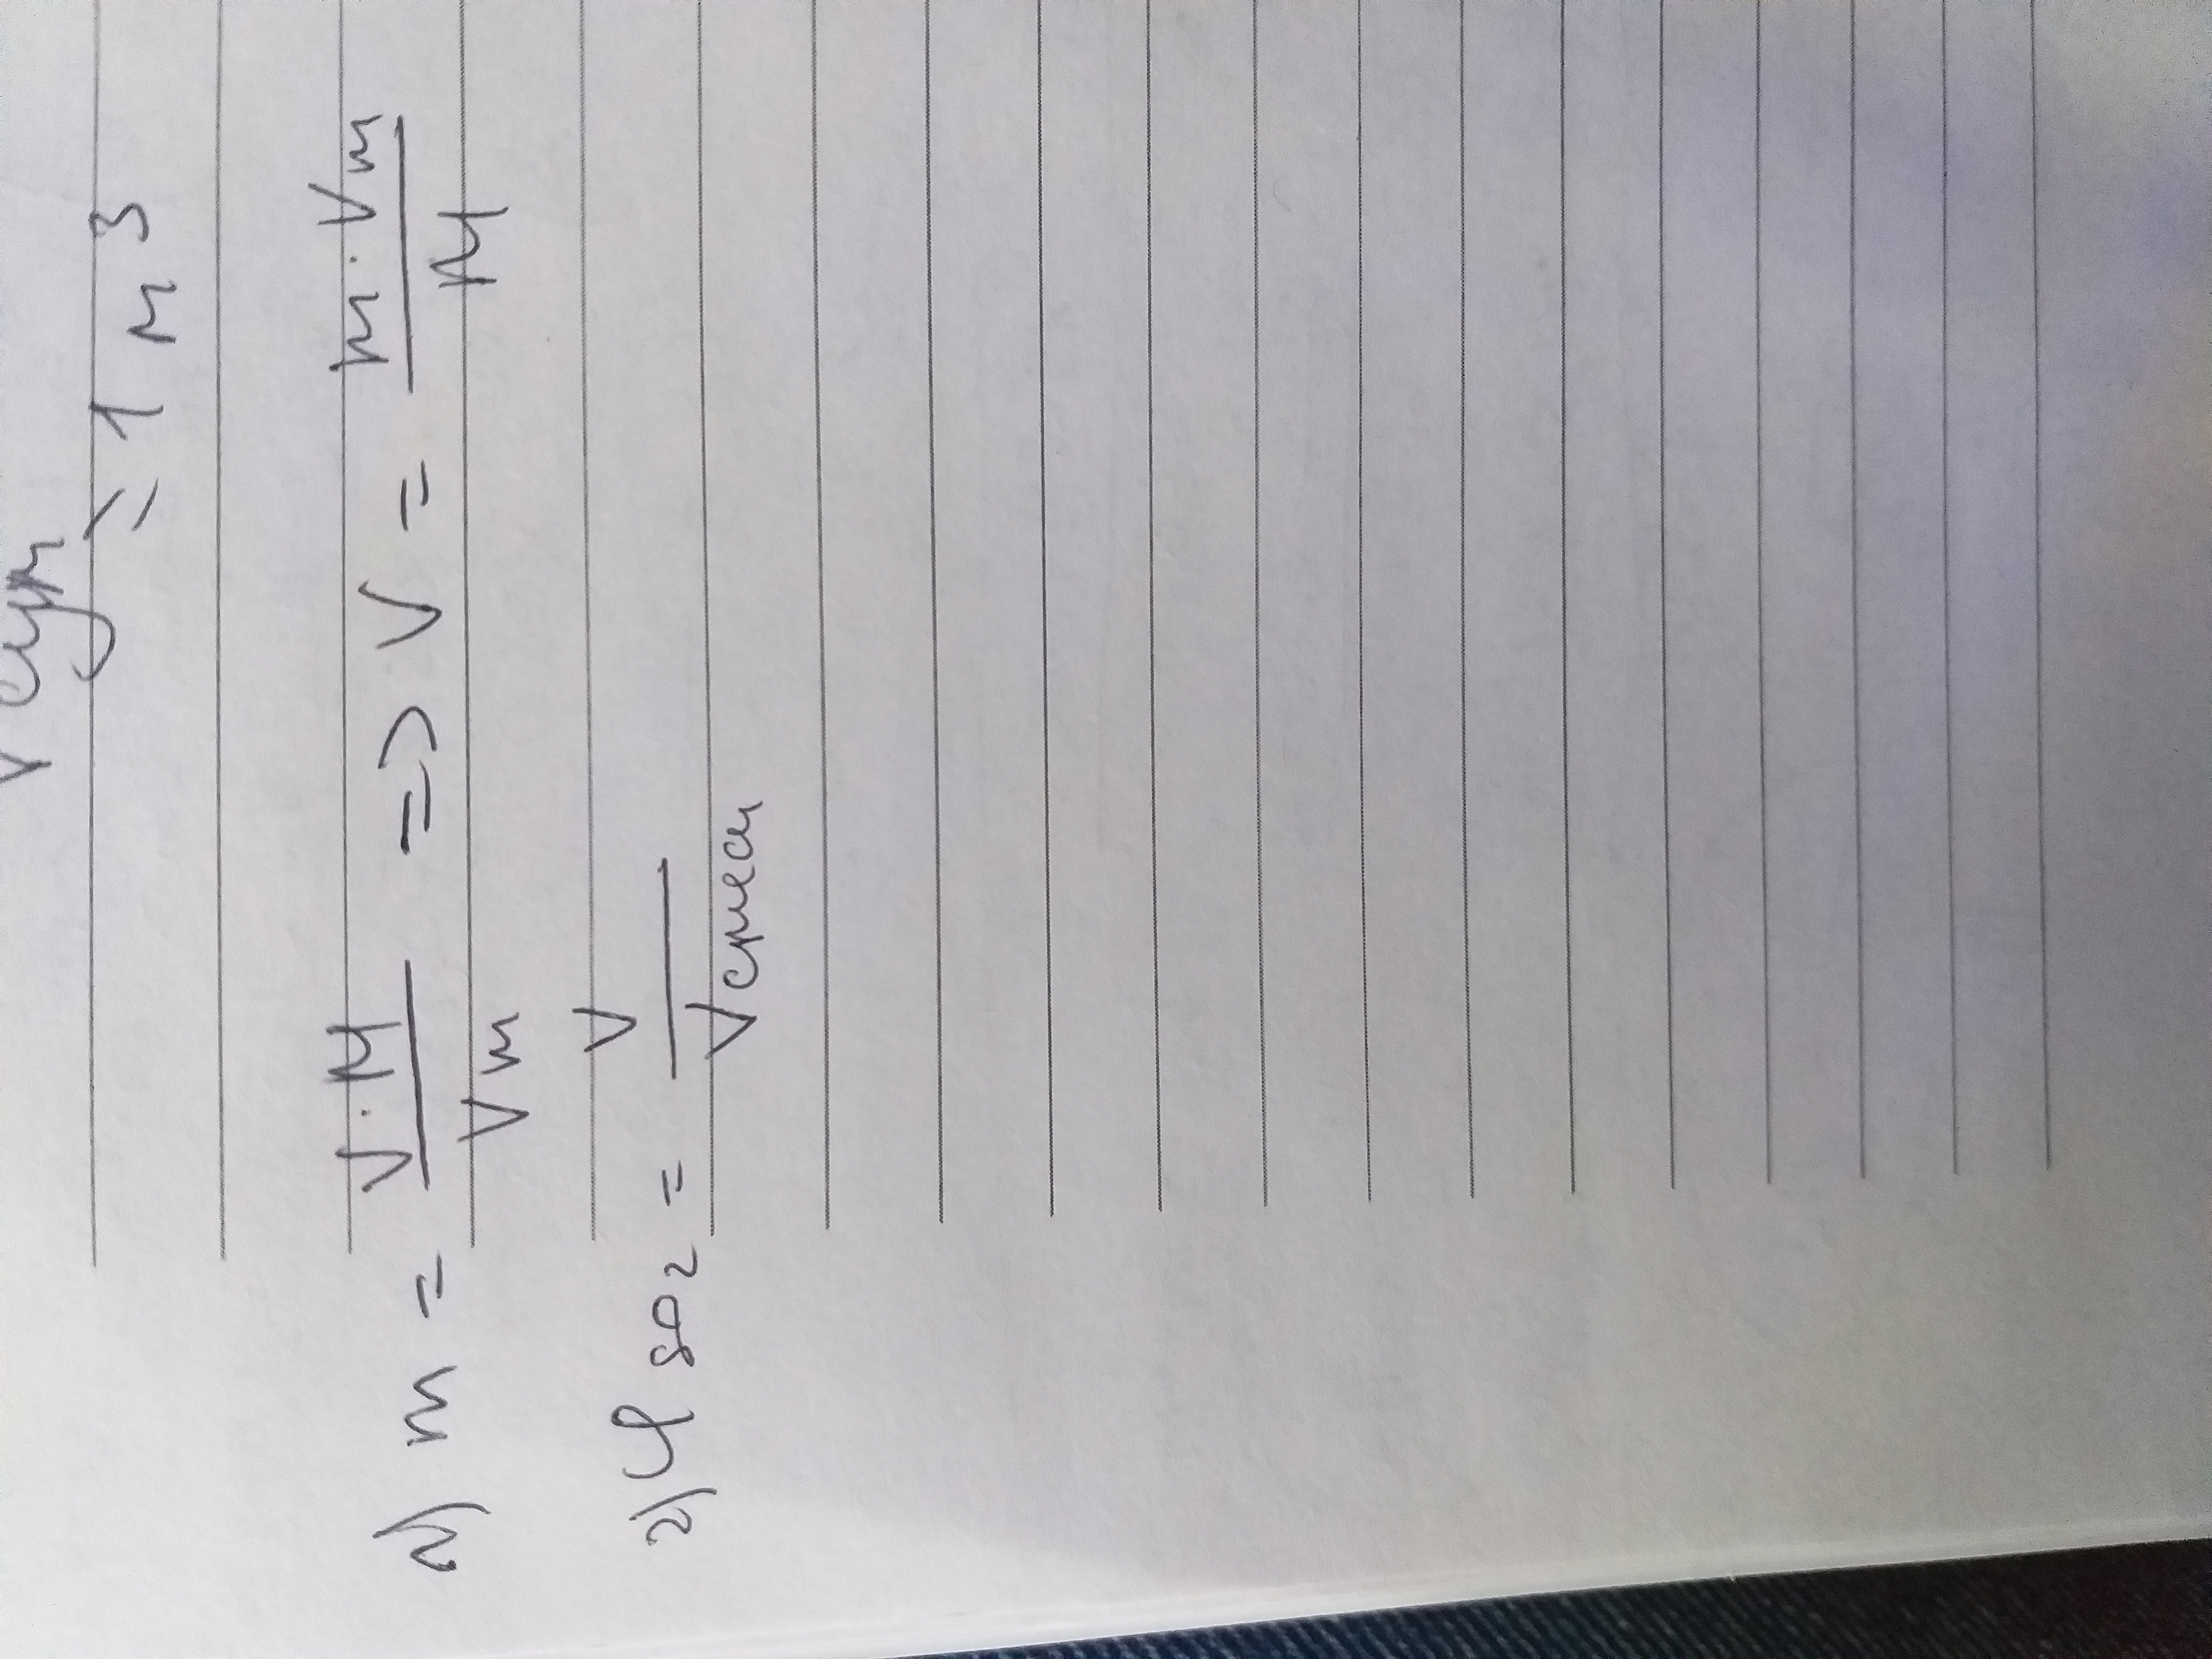 V сум
= 1 м³
1) m = V·M / Vm => V = m·Vm / M
2) φ SO₂ = V / V смеси